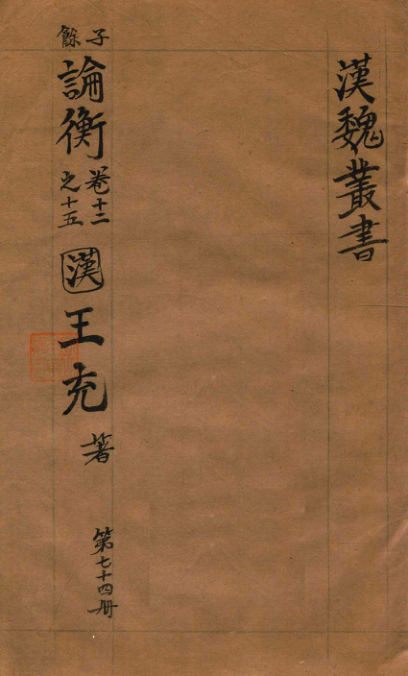 漢魏叢書
子餘
論衡
卷十二
之十五
漢
王充
著
第七十四册